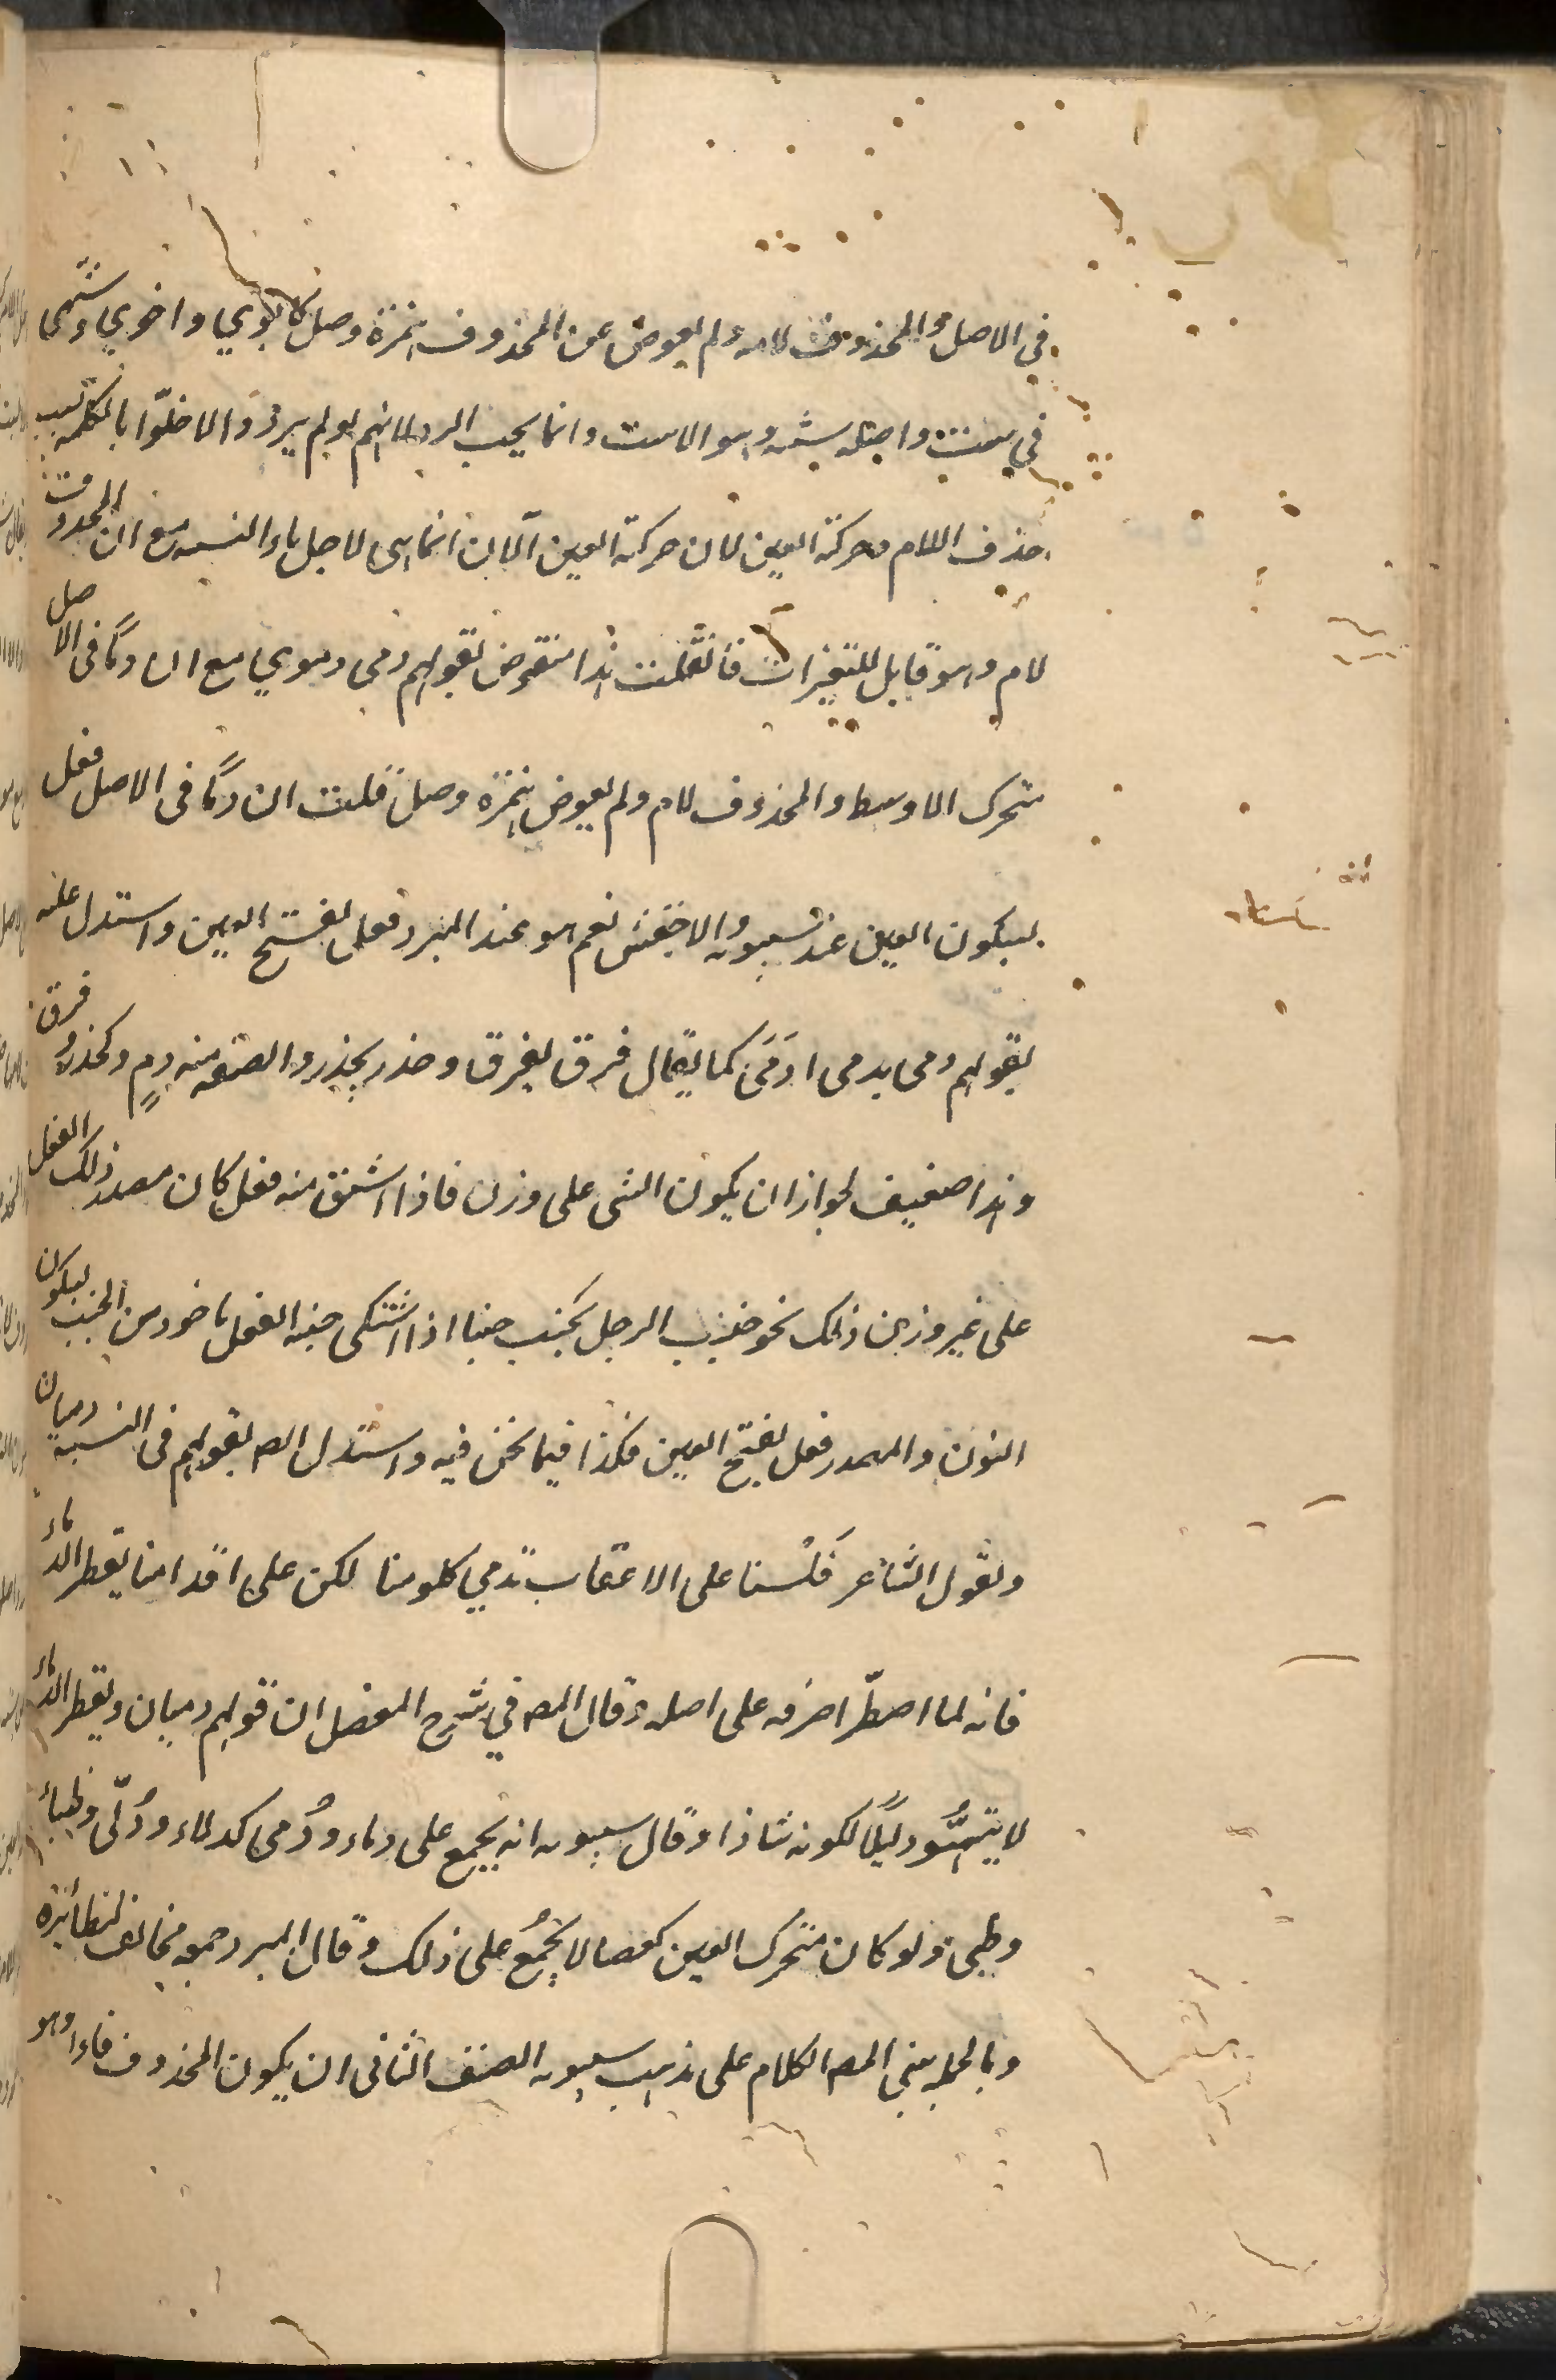 في الاصل والمحذوف لامه ولم يعوض عن المحذوف همزة وصل كابوي واخوي وستهى
في ست واصله سته وهو الاست وانما يجب الرد لانهم لو لم يردوا لاخلوا بالكلمة بسبب
حذف اللام وحركة العين لان حركة العين الآن انما هى لاجل ياء النسبه مع ان المحذوف
لام وهو قابل للتغيرات فان قلت هذا منقوض بقولهم دمى ودموي مع ان دمًا فى الاصل
متحرك الاوسط والمحذوف لام ولم يعوض همزة وصل قلت ان دمًا فى الاصل فعل
بسكون العين عند سيبويه والاخفش نعم هو عند المبرد فعل بفتح العين واستدل عليه
بقولهم دمى يدمى ادَمَى كما يقال فرق يفرق وحذر يحذر والصفه منه دمٍ وكحذر وفرق
وهذا ضعيف لجواز ان يكون الشى على وزن فاذا اشتق منه فعل كان مصدر ذلك الفعل
على غير وزن ذلك نحو جنب الرجل يجنب جنبا اذا اشتكى جنبه الفعل ماخوذ من الجنب بسكون
النون والمصدر فعل بفتح العين فكذا فيما نحن فيه واستدل المص بقولهم فى النسبه دميان
وبقول الشاعر فَلَسنا على الاعقاب تدمي كلومنا لكن على اقدامنا يقطر الدماء
فانه لما اضطرّ اخرجه على اصله وقال المص في شرح المفصل ان قولهم دميان ويقطر الدماء
لا يتمُّ دليلًا لكونه شاذا وقال سيبويه انه يجمع على دماء ودُمى كدلاء ودُلّى وظباء
وظبى ولو كان متحرك العين كعصا لا يُجمعُ على ذلك وقال المبرد جمعه مخالف لنظائره
وبالجملة بنى المص الكلام على مذهب سيبويه الصنف الثانى ان يكون المحذوف فاء وهو